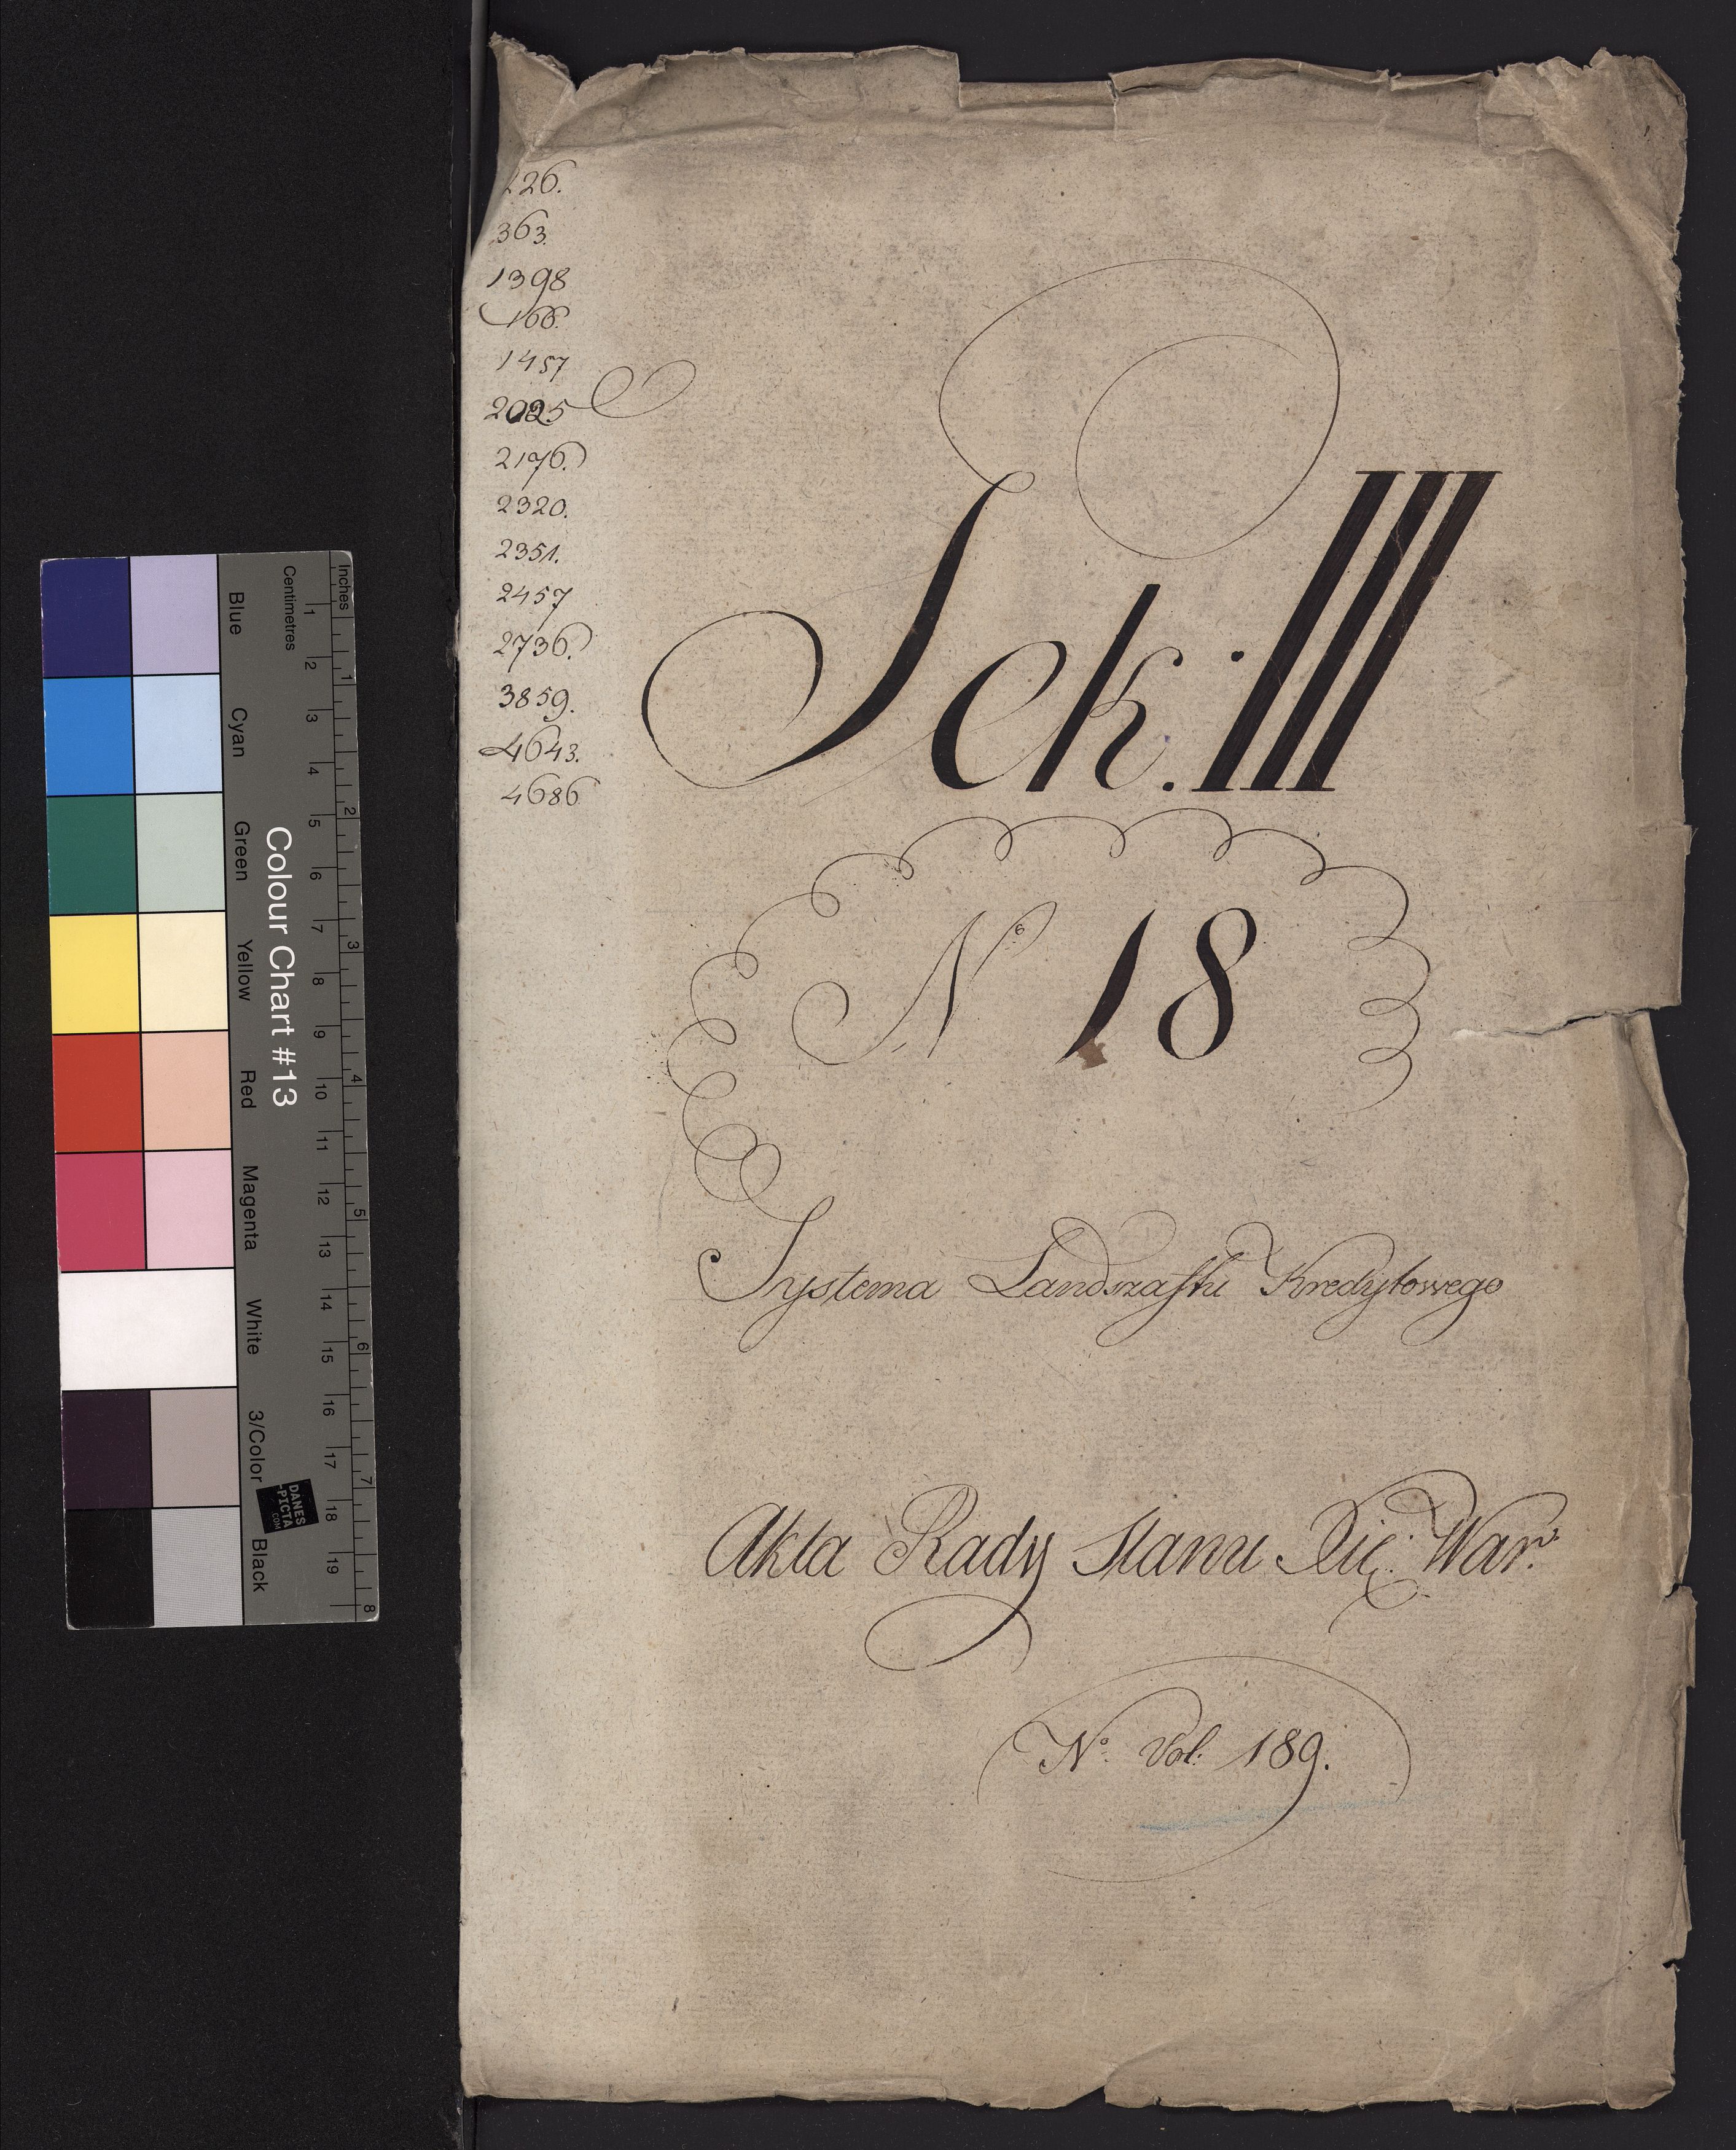 226.
363.
1398
166.
1457
2025
2176.
2320.
2351.
2457
2736.
3859.
4643.
4686
Sek. III
No 18
Systema Landszaftu Kredytowego
Akta Rady Stanu Xię: War:
No. Vol: 189.
Colour Chart #13
Blue Cyan Green Yellow Red Magenta White 3/Color Black
Centimetres 1 2 3 4 5 6 7 8 9 10 11 12 13 14 15 16 17 18 19
Inches 1 2 3 4 5 6 7 8
DANES
-PICTA
.COM